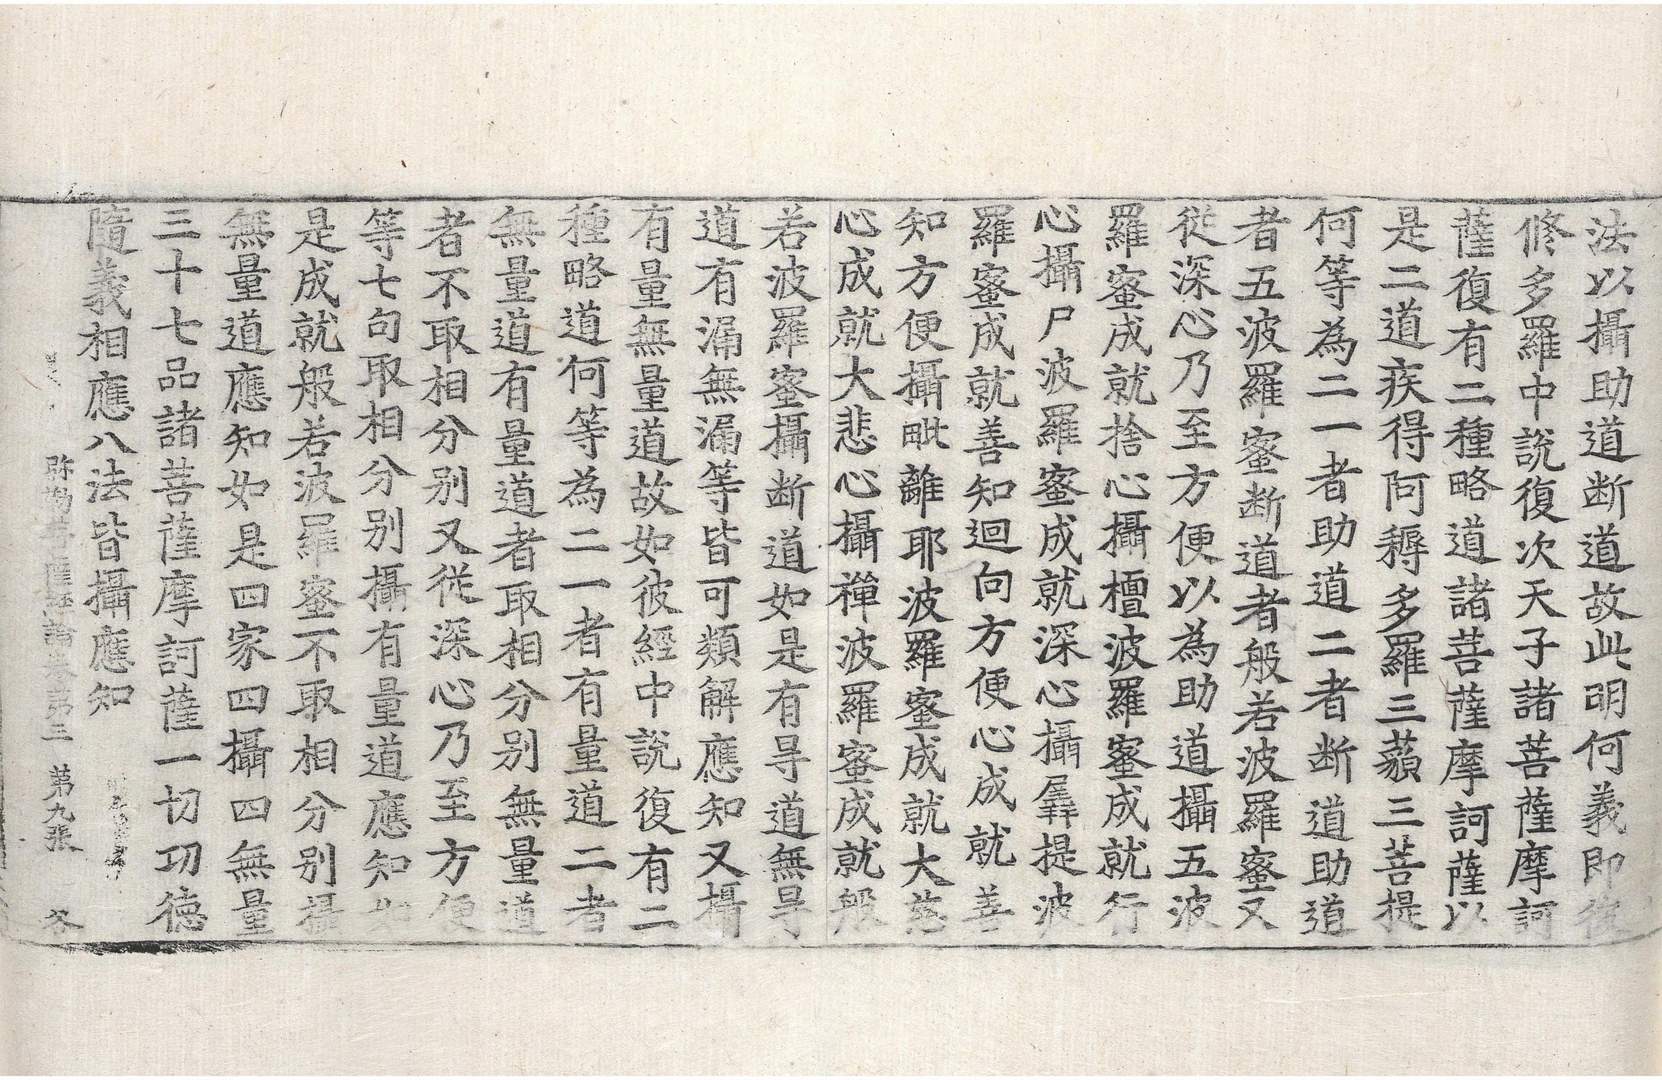 法以攝助道断道故此明何義即復
修多羅中說復次天子諸菩薩摩訶
薩復有二種略道諸菩薩摩訶薩以
是二道疾得阿耨多羅三藐三菩提
何等為二一者助道二者断道助道
者五波羅蜜断道者般若波羅蜜又
従深心乃至方便以為助道攝五波
羅蜜成就捨心攝檀波羅蜜成就行
心攝尸波羅蜜成就深心攝羼提波
羅蜜成就善知迴向方便心成就善
知方便攝毗離耶波羅蜜成就大慈
心成就大悲心攝禪波羅蜜成就般
若波羅蜜攝断道如是有㝵道無㝵
道有漏無漏等皆可類解應知又攝
有量無量道故如彼經中說復有二
種略道何等為二一者有量道二者
無量道有量道者取相分别無量道
者不取相分别又従深心乃至方便
等七句取相分别攝有量道應知如
是成就般若波羅蜜不取相分别攝
無量道應知如是四家四攝四無量
三十七品諸菩薩摩訶薩一切功徳
隨義相應八法皆攝應知
弥勒菩薩經論卷第三 第九张 谷